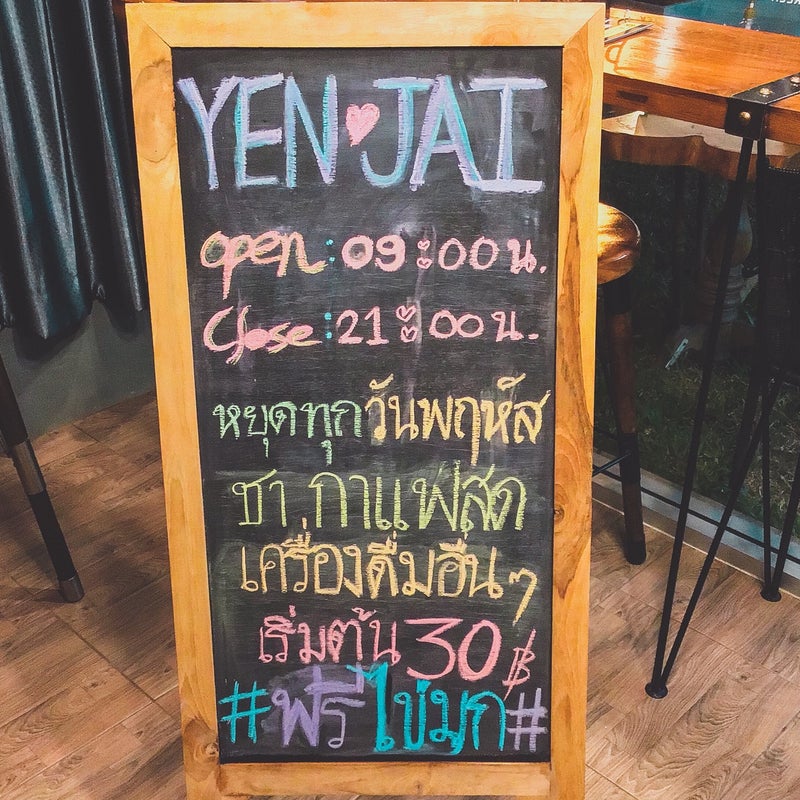 YEN♥JAI
open : 09:00 น.
Close : 21:00 น.
หยุดทุกวันพฤหัส
ชา กาแฟสด
เครื่องดื่มอื่น ๆ
เริ่มต้น 30 ฿
#ฟรี ไข่มุก#